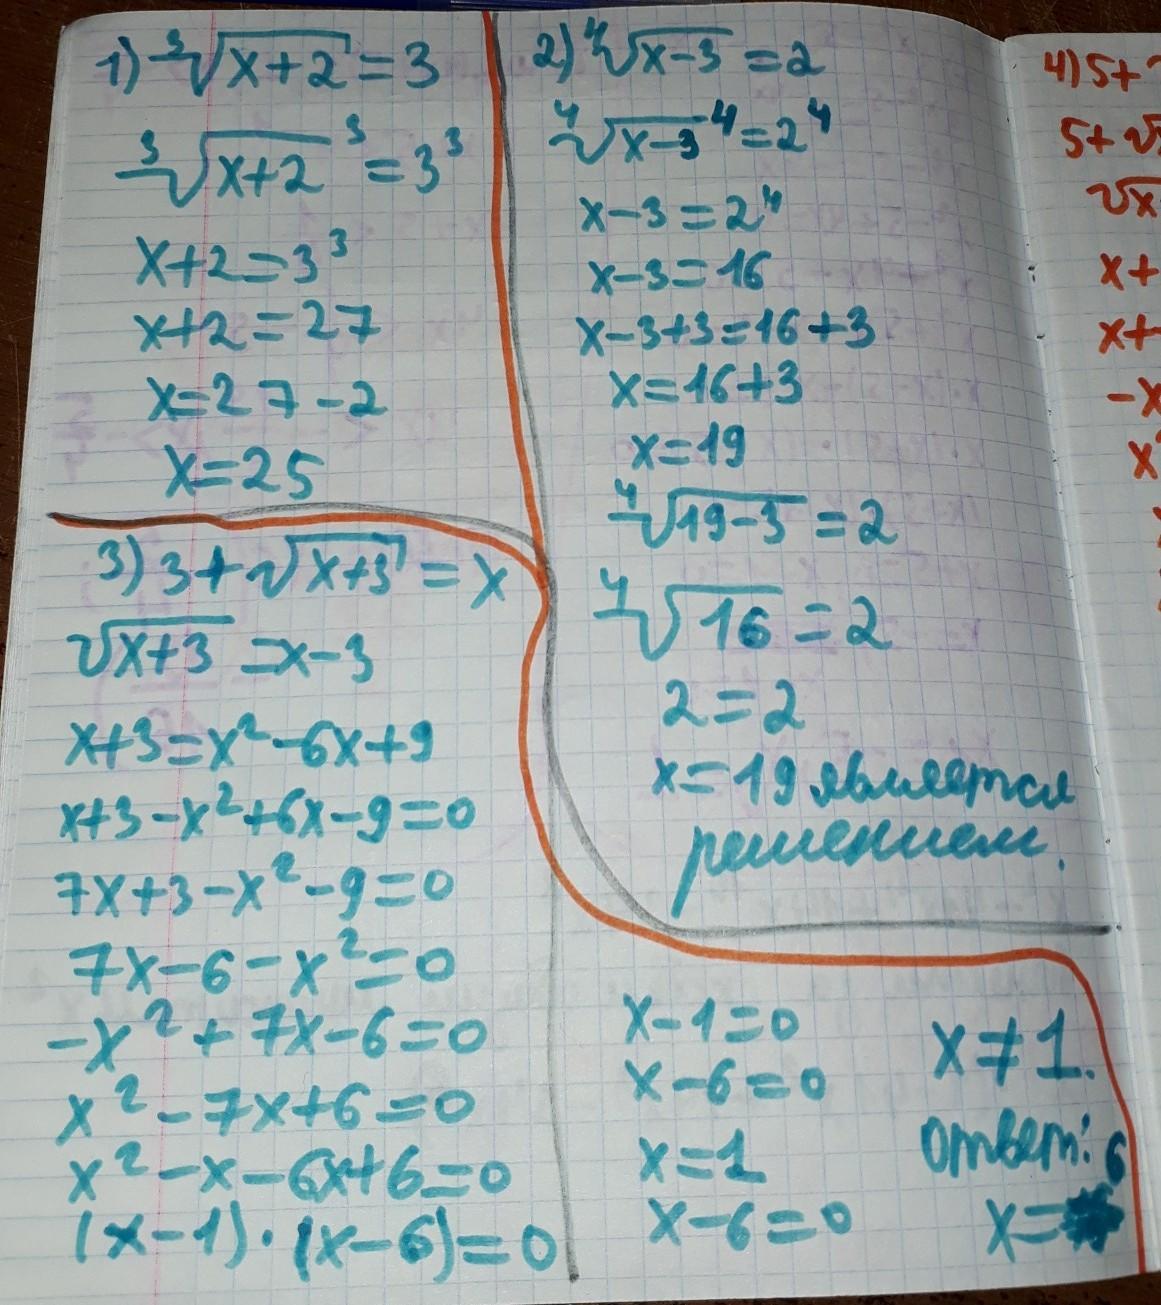 1) ³√(x+2) = 3
³√(x+2)³ = 3³
x+2=3³
x+2=27
x=27-2
x=25
2) ⁴√(x-3) = 2
⁴√(x-3)⁴ = 2⁴
x-3=2⁴
x-3=16
x-3+3=16+3
x=16+3
x=19
⁴√(19-3) = 2
⁴√16 = 2
2=2
x=19 является
решением.
3) 3+√(x+3) = x
√(x+3) = x-3
x+3=x²-6x+9
x+3-x²+6x-9=0
7x+3-x²-9=0
7x-6-x²=0
-x²+7x-6=0
x²-7x+6=0
x²-x-6x+6=0
(x-1)·(x-6)=0
x-1=0
x-6=0
x=1
x-6=0
x≠1.
ответ:
x=6
4) 5+
5+√
√x
x+
x+
-x
x²